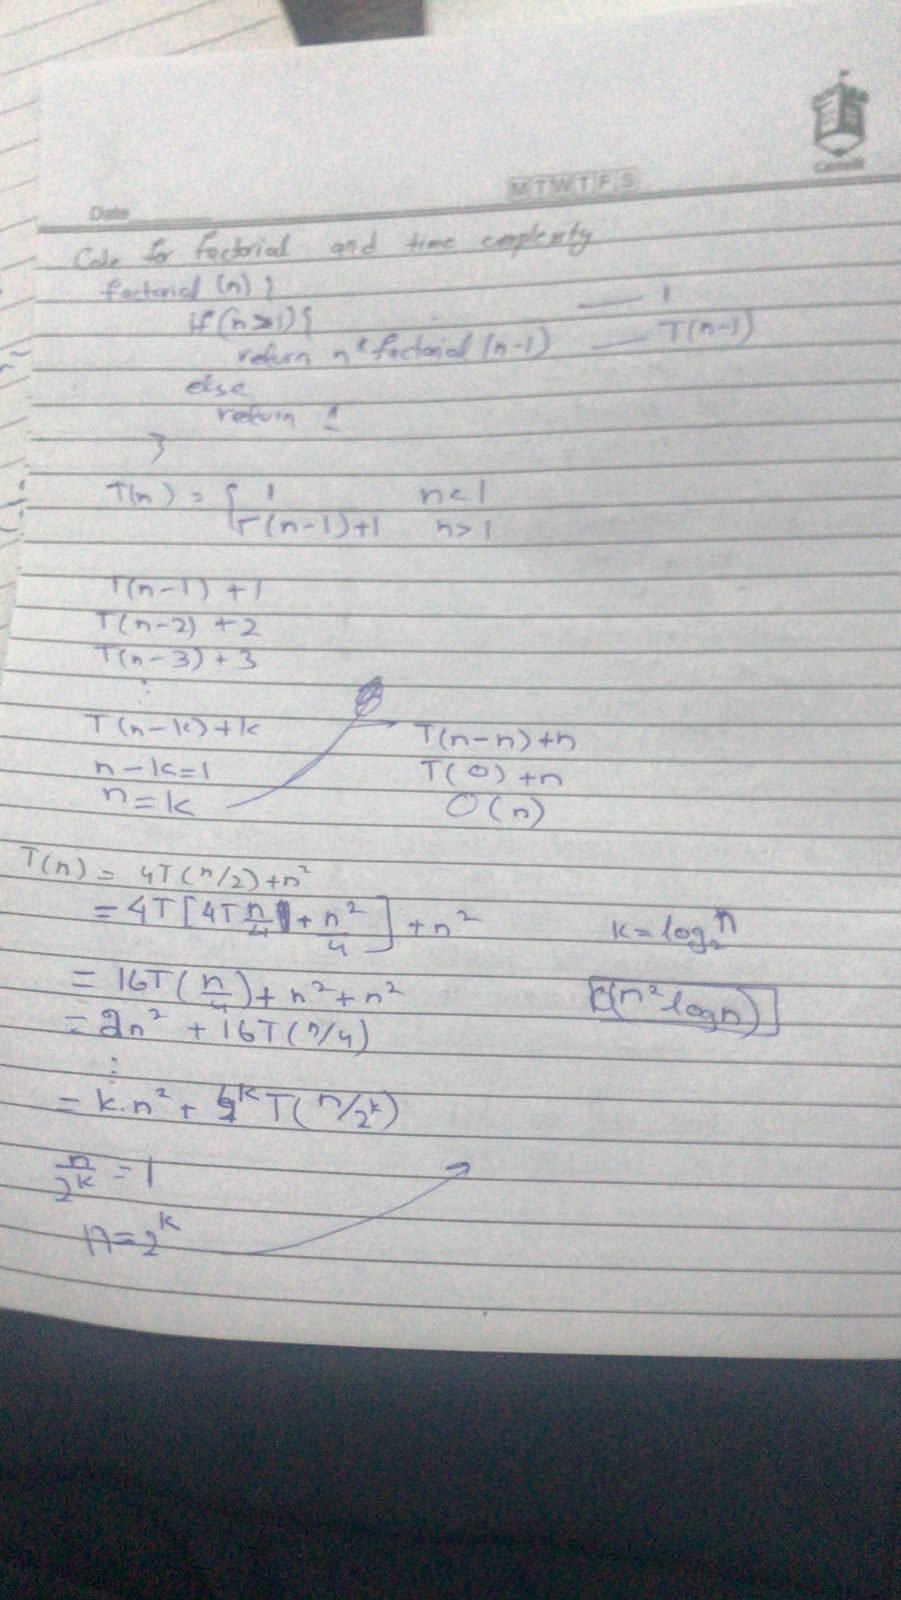 M T W T F S
Date
Code for factorial and time complexity
factorial (n) {
if (n>1) { — 1
return n * factorial (n-1) — T(n-1)
else
return 1
}
T(n) = { 1 n<1
T(n-1)+1 n>1
T(n-1) +1
T(n-2) +2
T(n-3) +3
⋮
T(n-k)+k
n-k=1
n=k
T(n-n)+n
T(0)+n
O(n)
T(n) = 4T(n/2)+n²
= 4T[4T n/4 + n²/4] + n²
= 16T(n/4) + n² + n²
= 2n² + 16T(n/4)
⋮
= k.n² + 4^k T(n/2^k)
n/2^k = 1
n=2^k
k=log₂n
(n² logn)